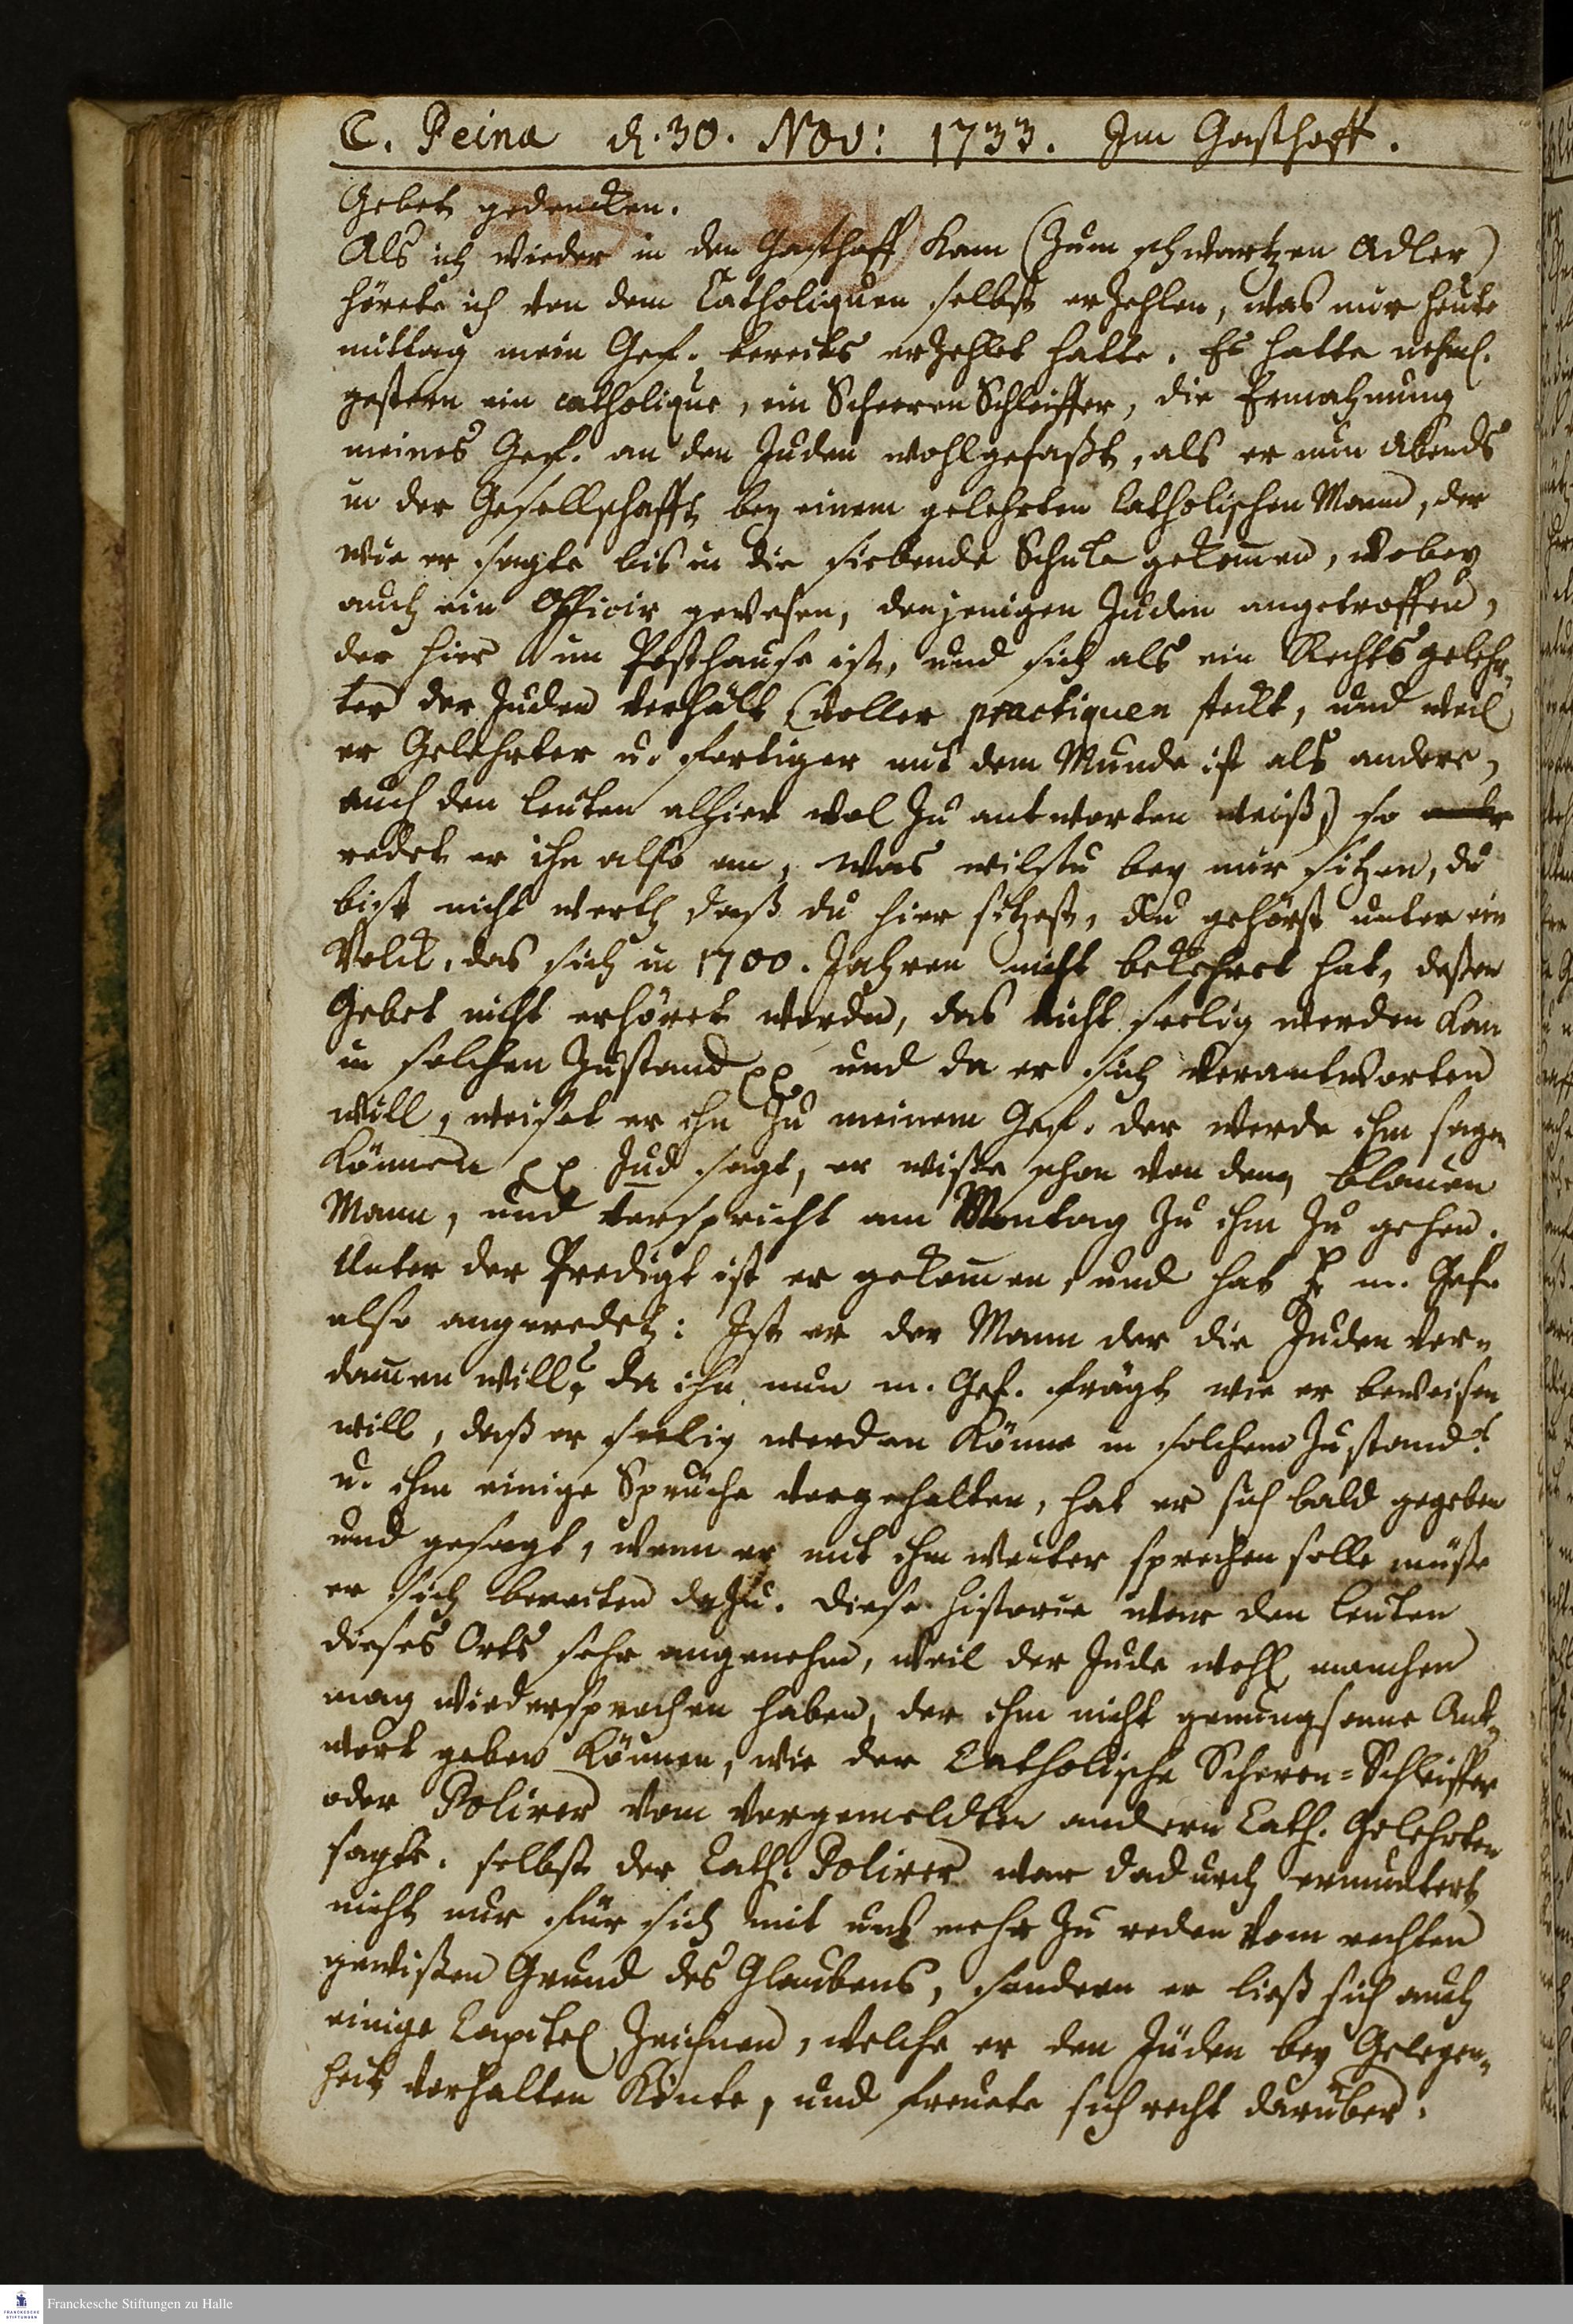 C. Peina d. 30. Nov: 1733. Im Gasthoff.
Gebet gedencken.
Als ich wieder in den Gasthoff kam (zum schwartzen Adler)
hörete ich von dem Catholiquen selbst erzehlen, was mir heute
mittag mein Gef. bereits erzehlet hatte. Es hatte nehml.
gestern ein catholique, ein Scheeren Schleiffer, die Ermahnung
meines Gef. an den Juden wohlgefasst, als er nun Abends
in der Gesellschafft bey einem gelehrten Catholischen Mann, der
wie er sagte bis in die siebende Schule gekom̅en, wobey
auch ein Officir gewesen, denjenigen Juden angetroffen,
der hier im Posthause ist, und sich als ein Rechtsgelehr„
ter der Juden verhält (voller practiquen steckt, und weil
er Gelehrter u. fertiger mit dem Munde ist als andere,
auch den leuten alhier wol zu antworten weiß) so
redet er ihn also an, was wilstu bey mir sitzen, du
bist nicht werth daß du hier sitzest, du gehörst unter ein
Volck, das sich in 1700. Jahren nicht bekehret hat, deßen
Gebet nicht erhöret worden, das nicht seelig werden kan
in solchen Zustand pp und da er sich verantworten
will, weiset er ihn zu meinem Gef. der werde ihm sagen
können pp Jud sagt, er wiße schon von dem blauen
Mann, und verspricht am Montag zu ihm zu gehen.
Unter der Predigt ist er gekom̅en, und hat m. Gef.
also angeredet: Ist er der Mann der die Juden ver„
dam̅en will? da ihn nun m. Gef. frägt wie er beweisen
will, daß er seelig werden könne in solchem Zustand?
u. ihm einige Sprüche vorgehalten, hat er sich bald gegeben
und gesagt, wenn er mit ihm weiter sprechen solle müße
er sich bereiten dazu. Diese historie war den leuten
dieses Orts sehr angenehm, weil der Jude wohl manchen
mag wiedersprochen haben, der ihm nicht genungsame Ant„
wort geben können, wie der Catholische Scheren-Schleiffer
oder Polirer vom vorgemeldten andern Cath. Gelehrten
sagte. selbst der Cath. Polirer war dadurch ermuntert
nicht nur für sich mit uns mehr zu reden vom rechten
gewißen Grund des Glaubens, sondern er ließ sich auch
einige Capitel zeichnen, welche er den Juden bey Gelegen„
heit vorhalten könte, und freuete sich recht darüber.
Franckesche Stiftungen zu Halle